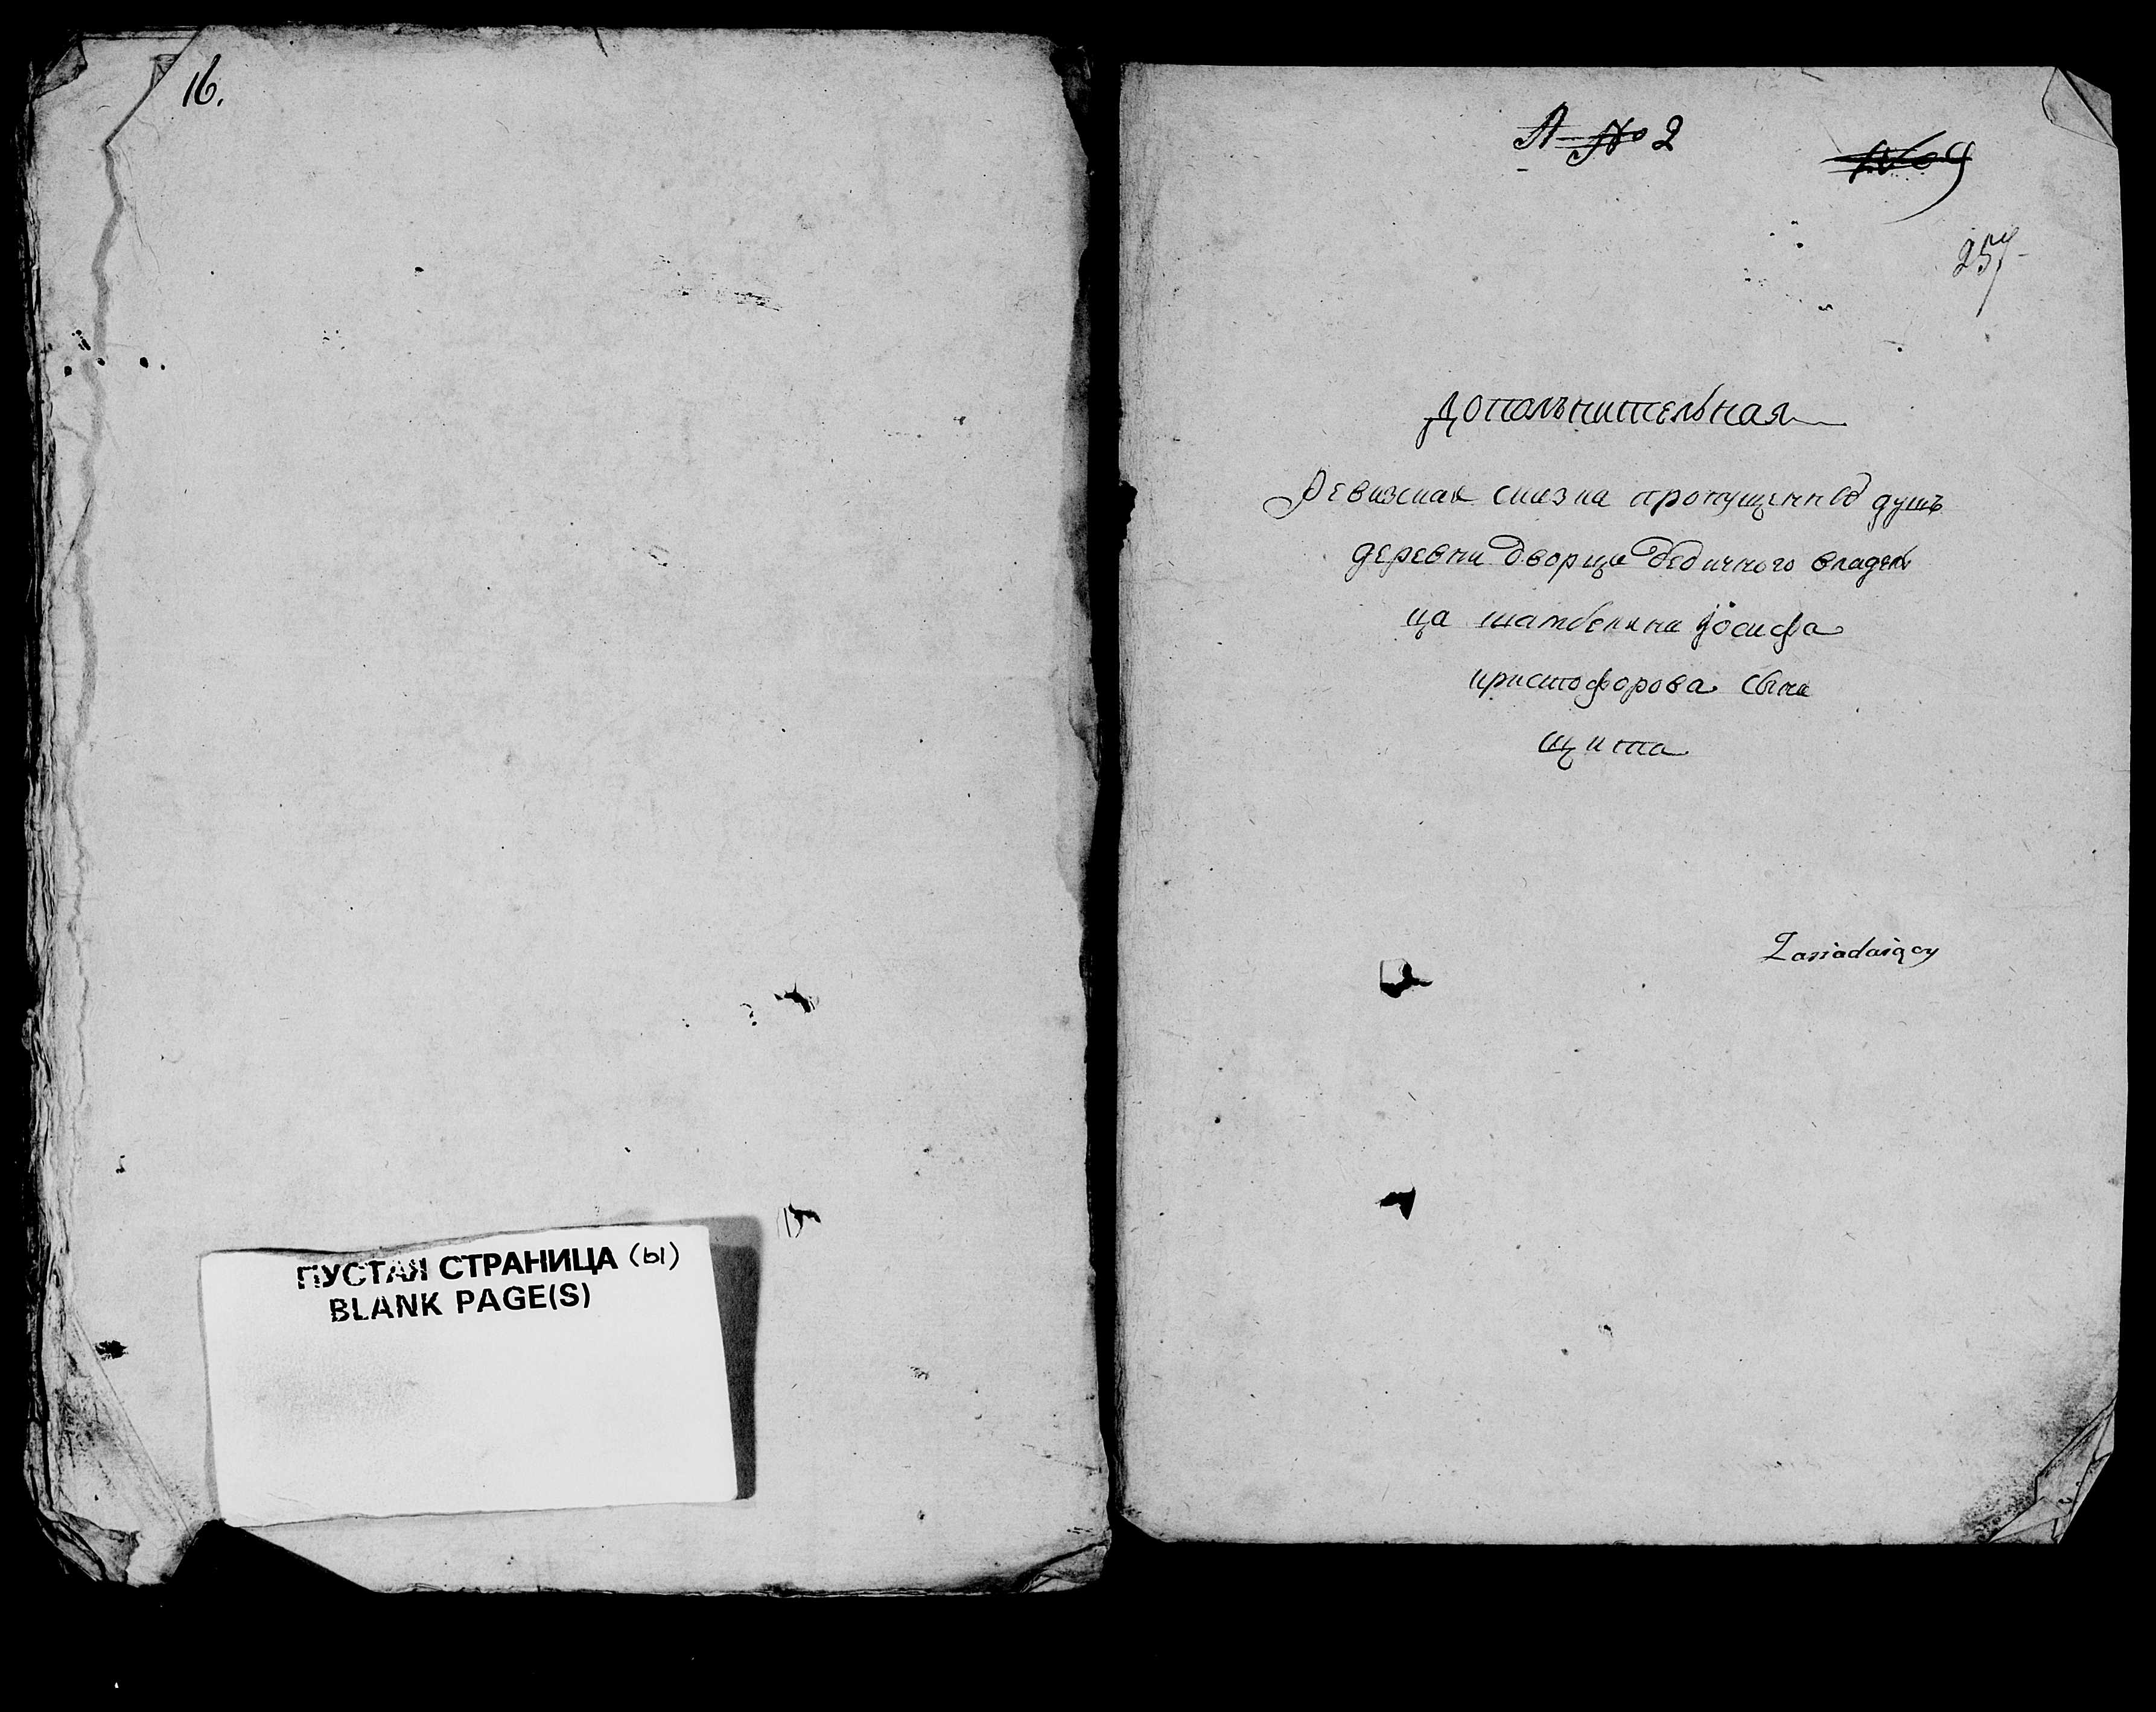 16.
ПУСТАЯ СТРАНИЦА (ы)
BLANK PAGE(S)
А № 2
№ 9
257
Дополънительная
Ревизская сказка пропущенныхъ душъ
деревни Дворца дедичного владель
ца шамбеляна Іосифа
христофорова сына
щита
Zasiadaiący